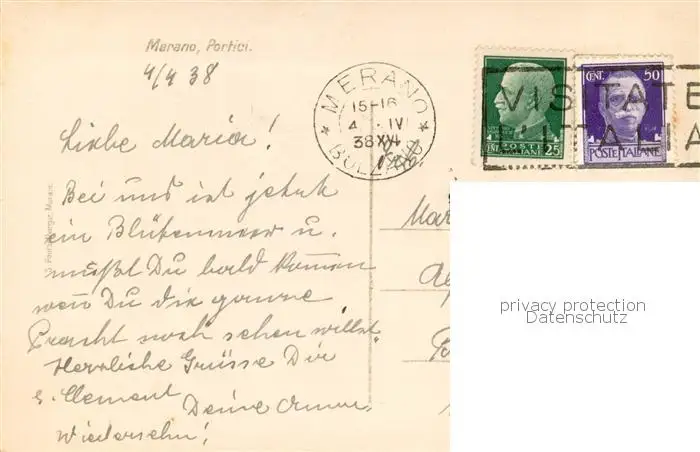 Merano, Portici.
4/4 38
MERANO
15-16
4 . IV
38 XVI
BOLZANO
CENT. 25
POSTE ITALIANE
CENT. 50
POSTE ITALIANE
VISITATE
L'ITALIA
Liebe Maria!
Bei uns ist jetzt
ein Blütenmeer u.
mußt Du bald kommen
wen Du die ganze
Pracht noch sehen willst.
Herrliche Grüsse Dir
Clement Deine
Wiedersehn!
Mar
privacy protection
Datenschutz